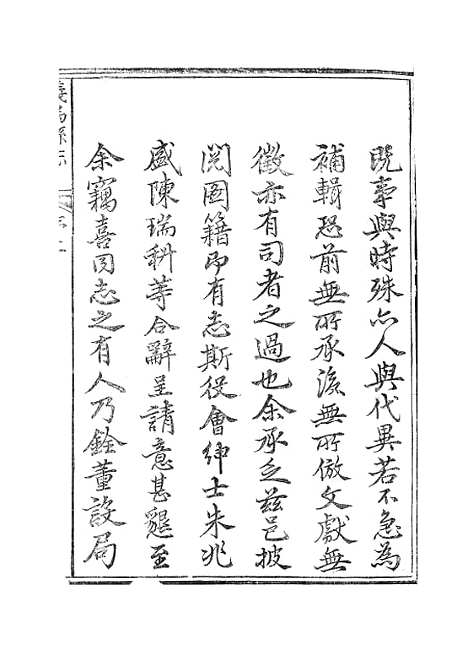 既事與時殊亦人與代異若不急為
補輯恐前無所承後無所倣文獻無
徵亦有司者之過也余承乏茲邑披
閱圖籍即有志斯役會紳士朱兆
盛陳瑞科等合辭呈請意甚懇至
余竊喜同志之有人乃銓董設局
義烏縣志